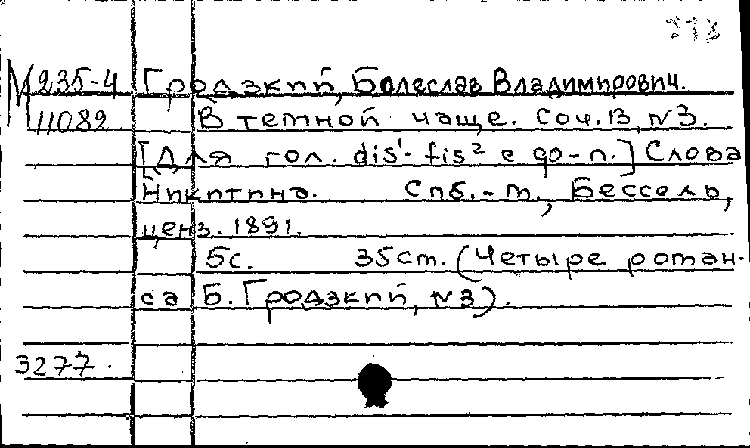 М 235-4 Гродзкий, Болеслав Владимирович.
11082 В темной чаще. Соч. 13, №3.
[Для гол. dis¹- fis² с фо-п.] Слова
Никитина. Спб.-М., Бессель,
ценз. 1891.
5с. 35см. (Четыре роман-
са Б. Гродзкий, №3).
3277.